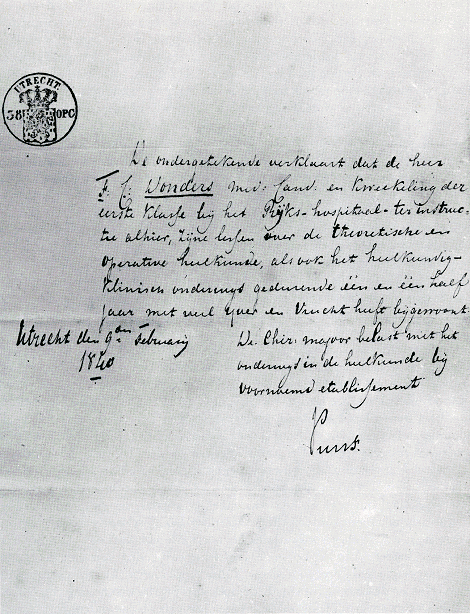 UTRECHT
38 OPC
De ondergetekende verklaart dat de heer
F. C. Donders med: Cand. en Kweekeling der
eerste klasse bij het Rijks-hospitaal-ter instruc-
tie alhier, zijne lessen over de theoretische en
operative heelkunde, als ook het heelkundig-
klinisch onderwijs gedurende één en één half
jaar met veel ijver en Vrucht heeft bijgewoont.
Utrecht den 9den February
1840
De Chir: majoor belast met het
onderwijs in de heelkunde bij
voornoemd etablissement